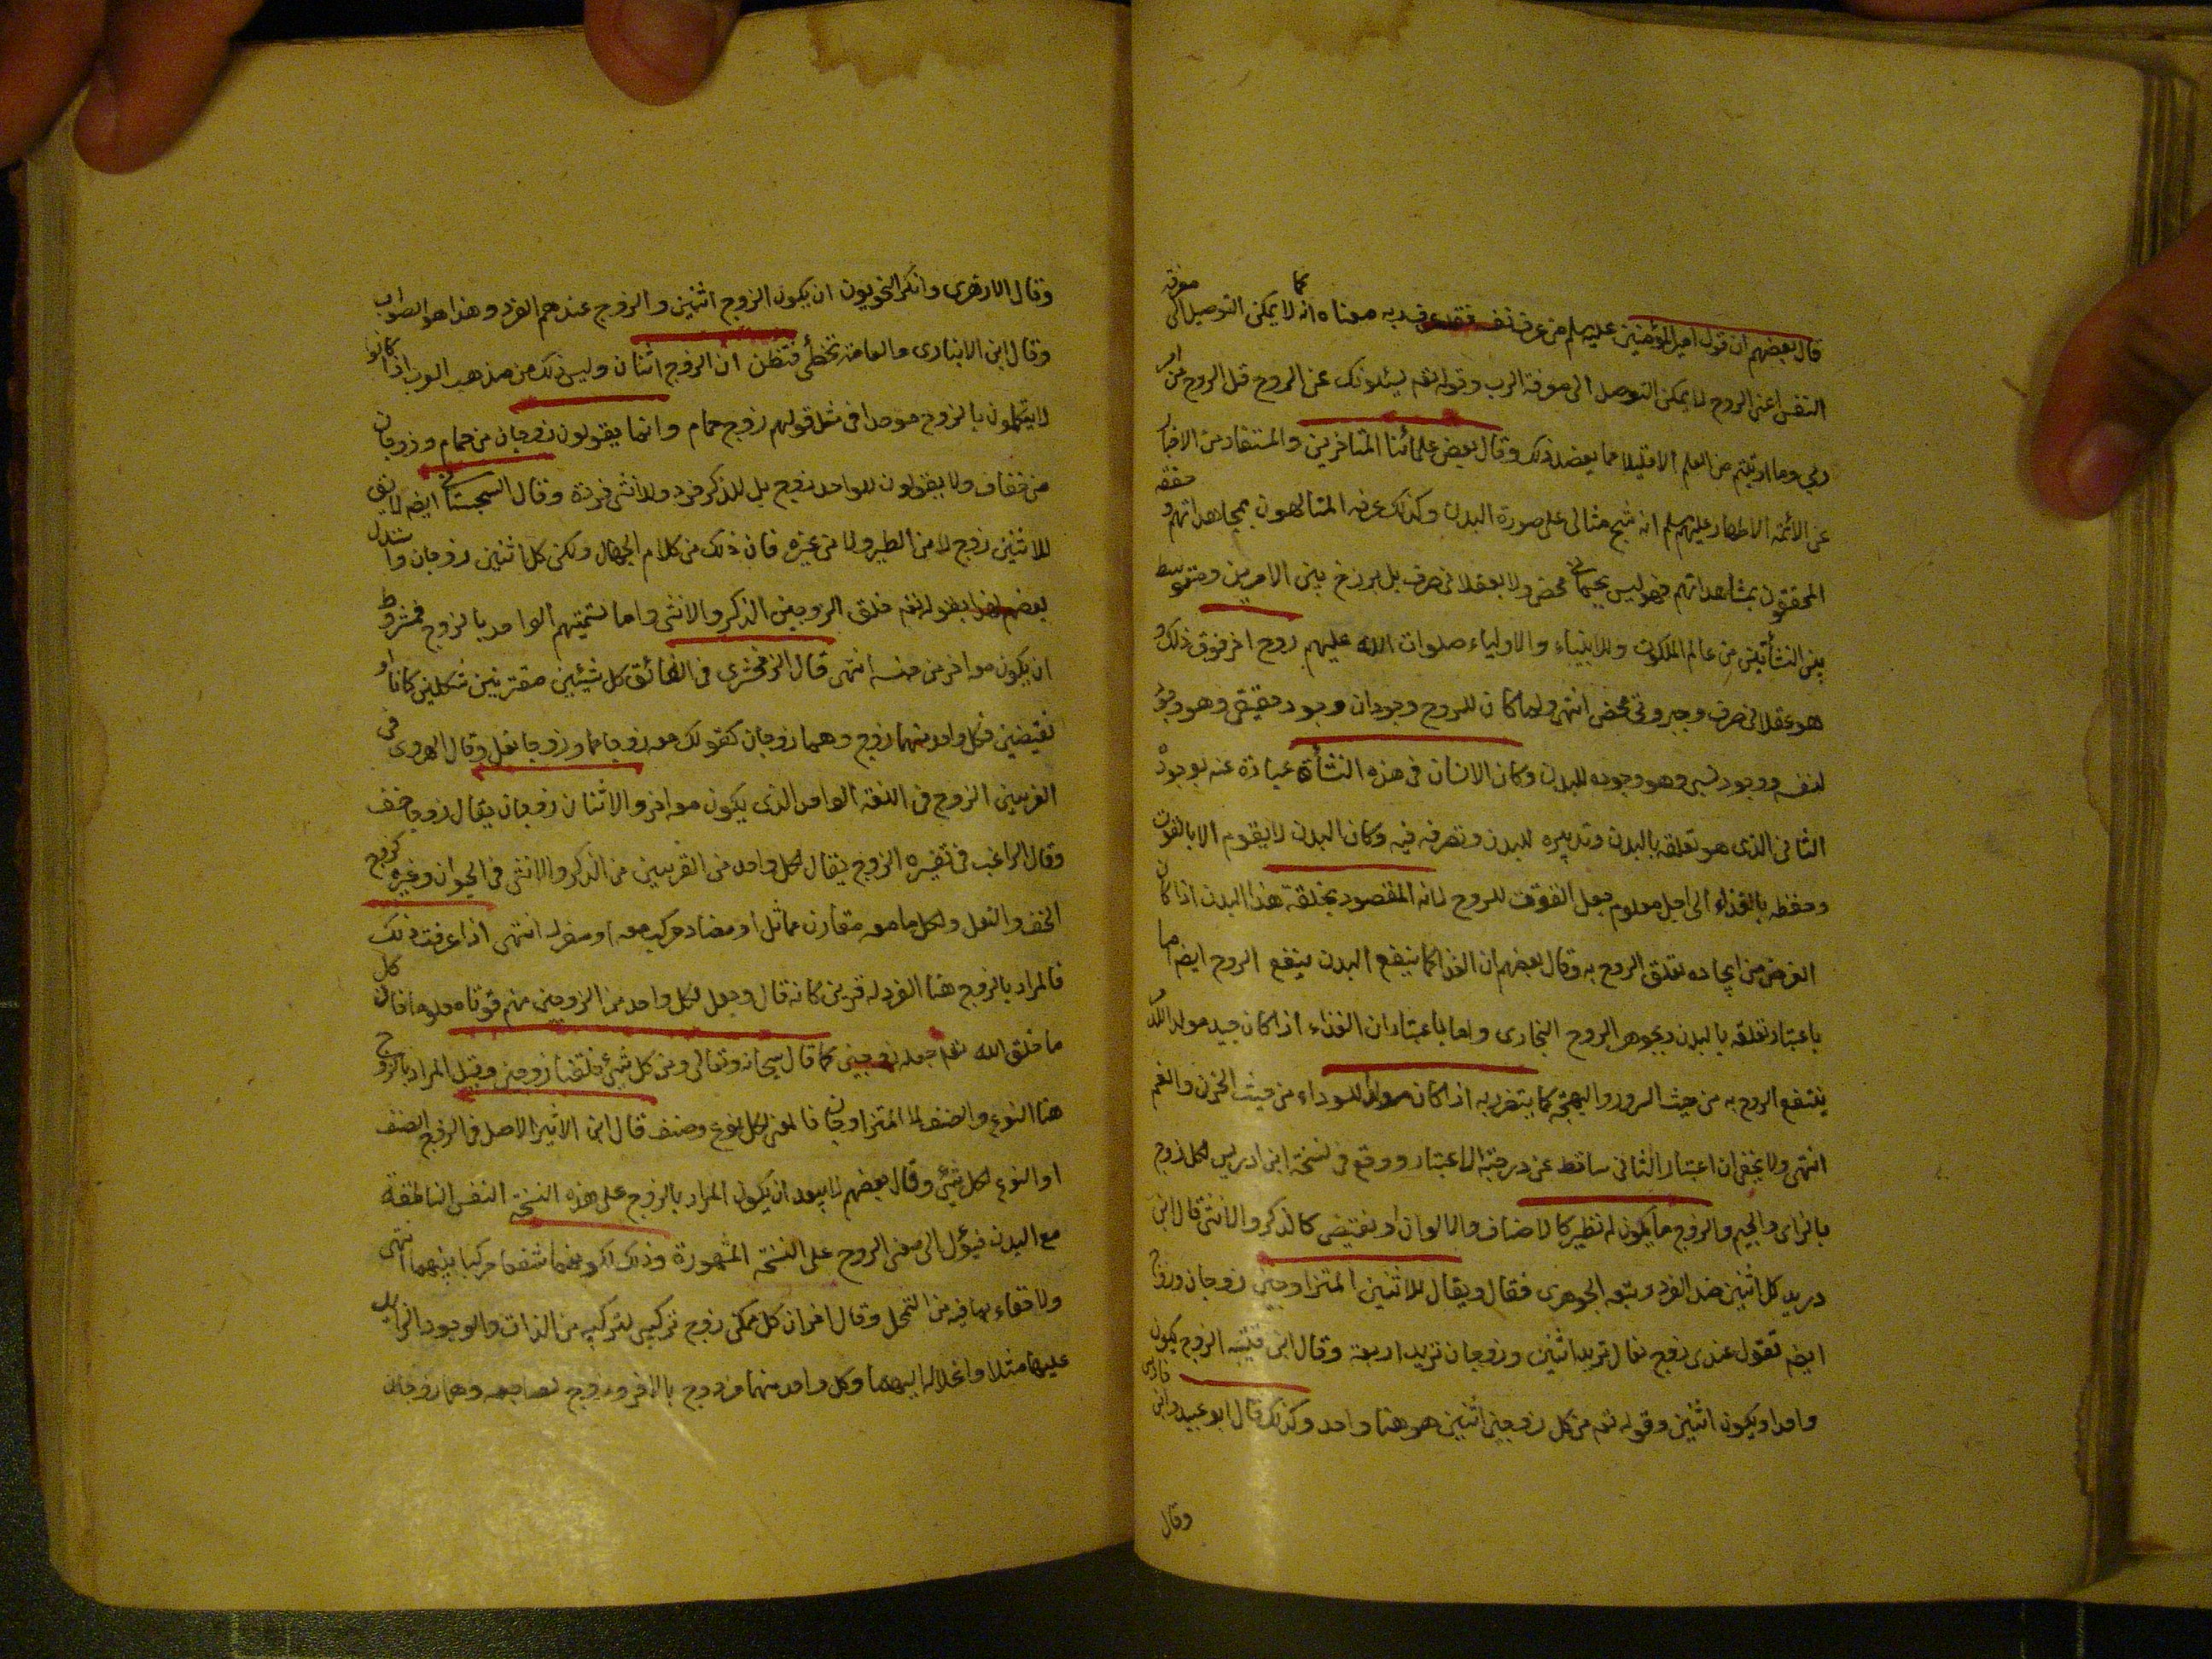 قال بعضهم ان قول امير المؤمنين عليه السلم من عرف نفسه فقد عرف ربه معناه انه كما لا يمكن التوصل الى معرفة
النفس اعنى الروح لا يمكن التوصل الى معرفة الرب وقوله تعه يسئلونك عن الروح قل الروح من امر
ربي وما اوتيتم من العلم الا قليلا مما يعضد ذلك وقال بعض علمائنا المتاخرين والمستفاد من الاخبار
عن الائمة الاطهار عليهم السلم انه شبح مثالى على صورة البدن وكذلك عرفه المتالهون بمجاهداتهم وحققه
المحققون بمشاهداتهم فهو ليس بجسمانى محض ولا بعقلانى صرف بل برزخ بين الامرين ومتوسط
بين النشأتين من عالم الملكوت وللانبياء والاولياء صلوات الله عليهم روح اخر فوق ذلك
هو عقلانى صرف وجبروتى محض انتهى ولما كان للروح وجودان وجود حقيقى وهو وجوده
لنفسه ووجود نسبى وهو وجوده للبدن وكان الانسان فى هذه النشأة عبارة عنه بوجوده
الثانى الذى هو تعلقه بالبدن وتدبيره للبدن وتصرفه فيه وكان البدن لا يقوم الا بالقوت
وحفظه بالغذاء الى اجل معلوم جعل القوت للروح لانه المقصود بخلقة هذا البدن اذا كان
الغرض من ايجاده تعلق الروح به وقال بعضهم ان الغذا كما ينفع البدن ينفع الروح ايضا اما
باعتبار تعلقه بالبدن وبجوهر الروح البخارى واما باعتبار ان الغذاء اذا كان جيد مولد الدم
ينتفع الروح به من حيث السرور والبهجة كما يتضرر به اذا كان مولد للسوداء من حيث الحزن والغم
انتهى ولا يخفى ان اعتبار الثانى ساقط عن درجة الاعتبار ووقع فى نسخة ابن ادريس لكل زوج
بالزاى والجيم والزوج ما يكون له نظير كالاصناف والالوان او نقيض كالذكر والانثى قال ابن
دريد كل اثنين ضد الفرد وتبعه الجوهرى فقال ويقال للاثنين المتزاوجين زوجان وزوج
ايضا تقول عندى زوج نعال تريد اثنين وزوجان تريد اربعة وقال ابن قتيبه الزوج يكون
واحدا ويكون اثنين وقوله تعه من كل زوجين اثنين هو هنا واحد وكذلك قال ابو عبيد وابن فارس
وقال
وقال الازهرى وانكر النحويون ان يكون الزوج اثنين والزوج عندهم الفرد وهذا هو الصواب
وقال ابن الانبارى والعامة تخطأ فتظن ان الزوج اثنان وليس ذلك من مذهب العرب اذا كانوا
لا يتكلمون بالزوج موحدا فى مثل قولهم زوج حمام وانما يقولون زوجان من حمام وزوجان
من خفاف ولا يقولون للواحد زوج بل للذكر فرد وللانثى فردة وقال السجستانى ايضا لا يقال
للاثنين زوج لا من الطير ولا من غيره فان ذلك من كلام الجهال ولكن كل اثنين زوجان واستدل
بعضهم لهذا بقوله تعه خلق الزوجين الذكر والانثى واما تسميتهم الواحد بالزوج فمشروط
ان يكون معه اخر من جنسه انتهى قال الزمخشرى فى الفائق كل شيئين مقترنين شكلين كانا او
نقيضين فكل واحد منهما زوج وهما زوجان كقولك معه زوجا حمام وزوجا نعل وقال الهروى فى
الغريبين الزوج فى اللغة الواحد الذى يكون معه اخر والاثنان زوجان يقال زوجا خف
وقال الراغب فى تفسيره الزوج يقال لكل واحد من القرينين من الذكر والانثى فى الحيوان وغيره كزوج
الخف والنعل ولكل ما معه مقارن مماثل او مضاد مركب معه او مفرد انتهى اذا عرفت ذلك
فالمراد بالزوج هنا الفرد له قرين كانه قال وجعل لكل واحد من الزوجين منهم قوتا معلوما فان كل
ما خلق الله تعه جعله زوجين كما قال سبحانه وتعالى ومن كل شيئ خلقنا زوجين وقيل المراد بالزوج
هنا النوع والصنف المتزاوجان فالمعنى لكل نوع وصنف قال ابن الاثير الاصل فى الزوج الصنف
او النوع لكل شيئ وقال بعضهم لا يبعد ان يكون المراد بالزوج على هذه النسخة النفس الناطقة
مع البدن فيؤل الى معنى الروح على النسخة المشهورة وذلك لكونهما شفعا مركبا بينهما انتهى
ولا خفاء بما فيه من التمحل وقال اخر ان كل ممكن زوج تركيبى لتركيبه من الذات والوجود الزايد
عليها مثلا وانحلاله اليهما وكل واحد منهما مزدوج بالاخر وزوج لصاحبه وهما زوجان